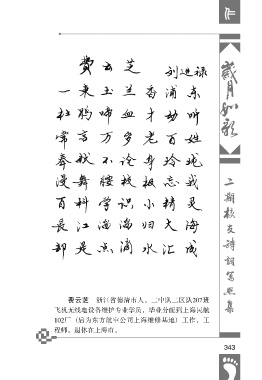 費云芝
刘进禄
一束玉兰香浦东
杜鹃啼血才动听
常言万岁老百姓
奉献不论身玲珑
漫舞忘我
百科学识小精灵
长江滔滔归大海
却是点滴水汇成
费云芝 浙江省德清市人。三中队二区队207班
飞机无线电设备维护专业学员，毕业分配到上海民航
102厂（后为东方航空公司上海维修基地）工作，工
程师。退休在上海市。
歲月如歌
二期校友詩詞写照集
343